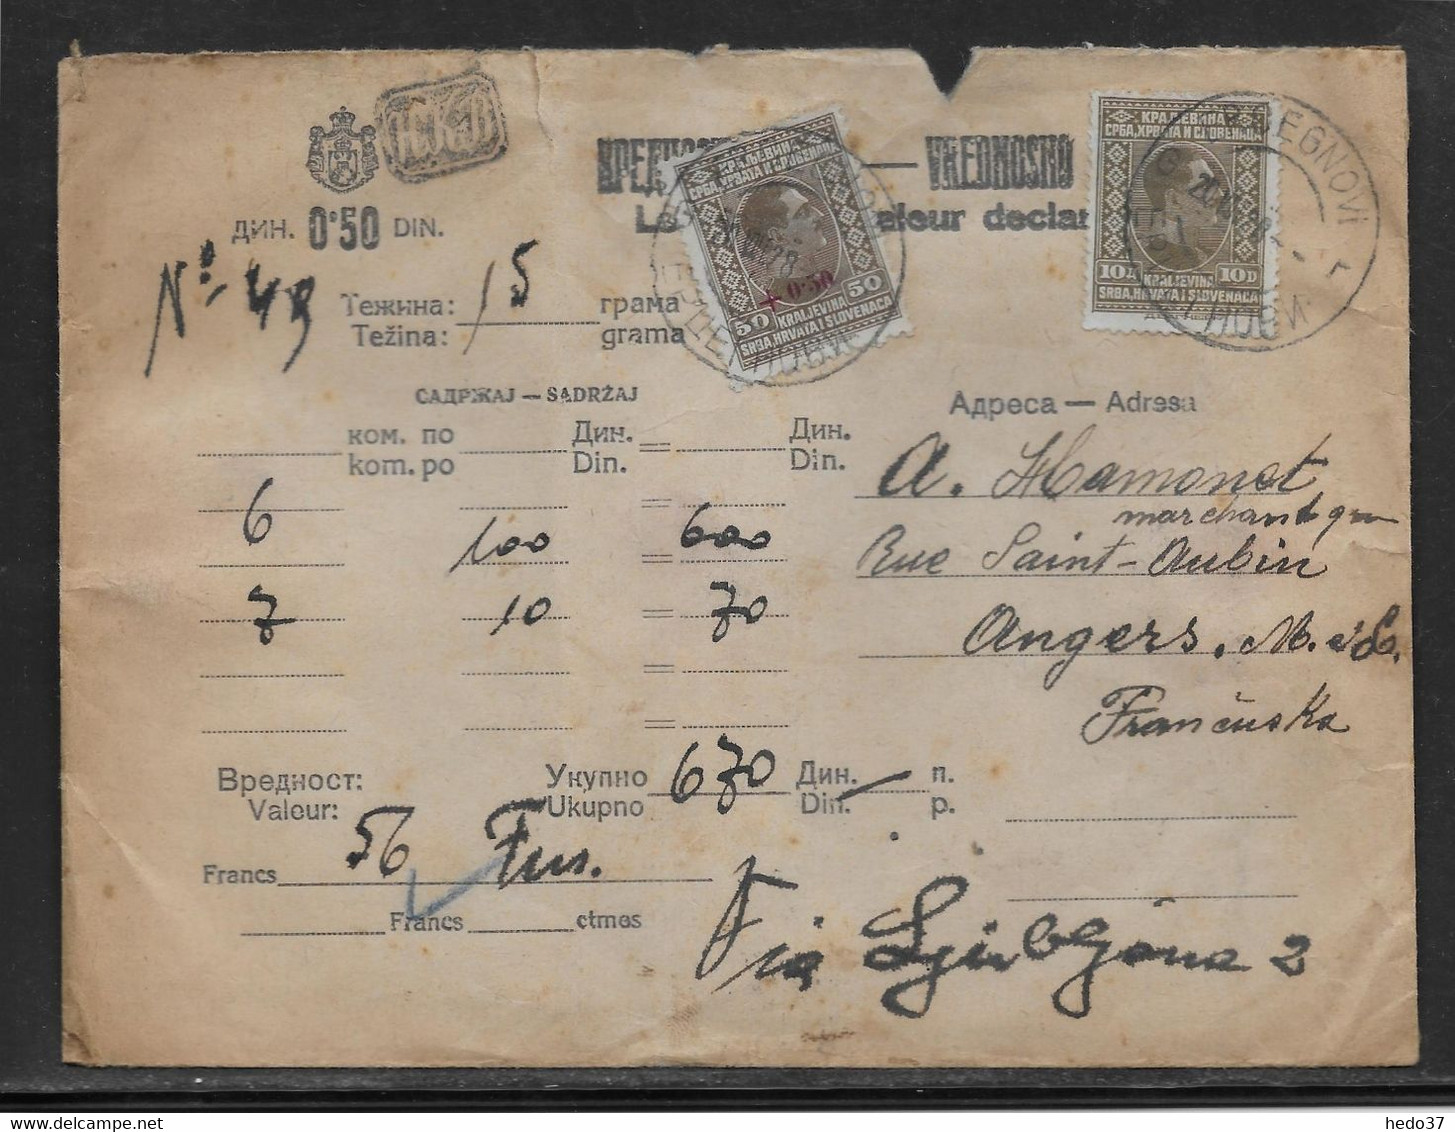 ДИН. 0·50 DIN.
VREDNOSNO
valeur declar
КРАЉЕВИНА
СРБА, ХРВАТА И СЛОВЕНАЦА
+0·50
50 50
KRALJEVINA
SRBA, HRVATA I SLOVENACA
КРАЉЕВИНА
СРБА, ХРВАТА И СЛОВЕНАЦА
10Д 10D
KRALJEVINA
SRBA, HRVATA I SLOVENACA
EGNOVI
№ 49
Тежина: 15 грама
Težina: grama
САДРЖАЈ — SADRŽAJ
ком. по Дин. = Дин.
kom. po Din. Din.
=
6 100 = 600
7 10 = 70
=
=
Вредност: Укупно 670 Дин. — п.
Valeur: Ukupno Din. p.
Francs 56
Francs ctmes
Адреса — Adresa
A. Mamonet
marchand
Rue Saint-Aubin
Angers. M. & L.
Francuska
Via Ljubljana 2
© www.delcampe.net hedo37